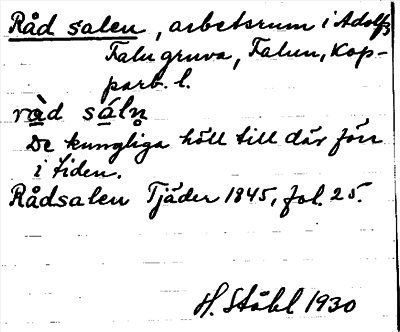 Råd salen, arbetsrum i Adolfs
Falu gruva, Falun, Kop-
parb. l.
rå̀d sá̊ln̥
De kungliga höll till där förr
i tiden.
Rådsalen Tjäder 1845, fol. 25.
H. Ståhl 1930